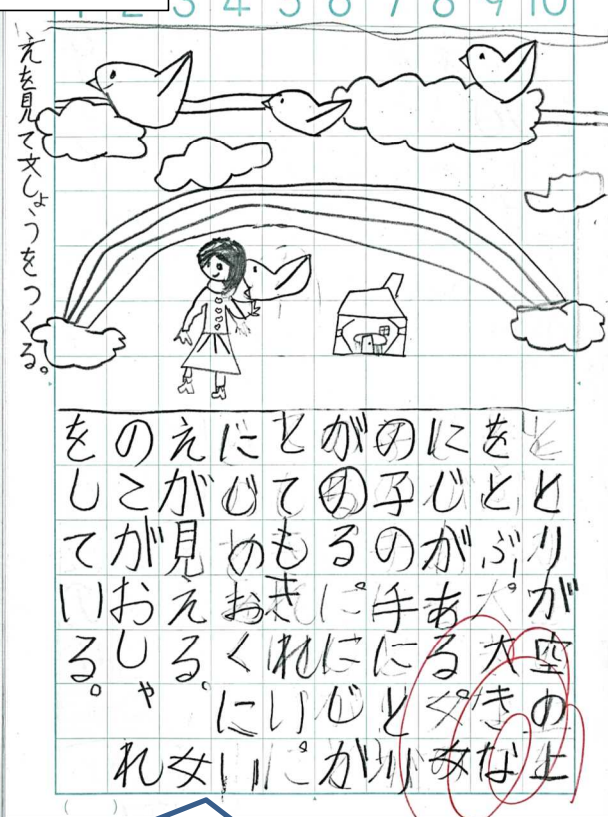 2 3 4 5 6 7 8 9 10
えを見て文しょうをつくる。
とりが空の上
をとぶ。大きな
にじがある。女
の子の手にとり
がのる。にじが
とてもきれい。
にじのおくにい
えが見える。女
のこがおしゃれ
をしている。